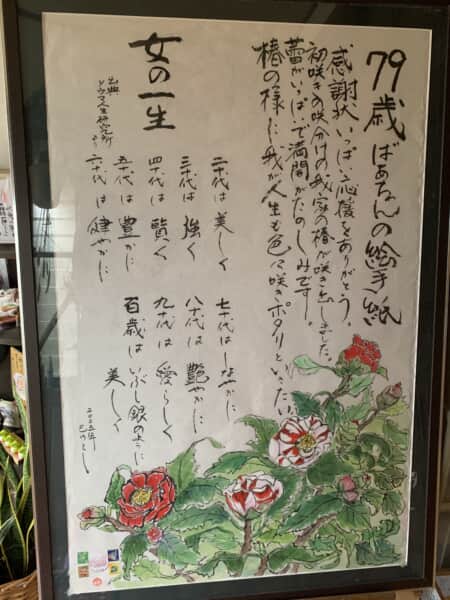 79歳ばあちゃんの絵手紙
感謝状いっぱい応援をありがとう。
初咲きの咲分けの我家の椿が咲き出しました。
蕾がいっぱいで満開がたのしみです。
椿の様に我が人生も色々咲きポタリといったい
女の一生
出典
ドウマ人生研究所
より
二十代は美しく
三十代は強く
四十代は賢く
五十代は豊かに
六十代は健やかに
七十代はしなやかに
八十代は艶やかに
九十代は愛らしく
百歳はいぶし銀のように
美しく
2025年